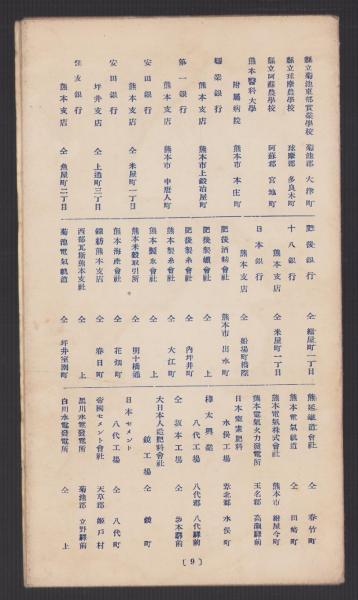 縣立菊池東部實業學校 菊池郡 大津町
縣立球摩農學校 球摩郡 多良木町
縣立阿蘇農學校 阿蘇郡 宮地町
熊本醫科大學
附屬病院 熊本市 本庄町
銀行
熊本支店 熊本市上鍛冶屋町
第一銀行
熊本支店 熊本市 中唐人町
安田銀行
熊本支店 仝 米屋町一丁目
安田銀行
坪井支店 仝 上通町三丁目
住友銀行
熊本支店 仝 魚屋町二丁目
肥後銀行 仝 紺屋町一丁目
十八銀行
熊本支店 仝 米屋町一丁目
日本銀行
熊本支店 仝 船場町橋際
肥後酒精會社 熊本市 出水町
肥後製蠟會社 仝 上
肥後製糸會社 仝 內坪井町
熊本製糸會社 仝 大江町
熊本製氷會社 仝 上
熊本米穀取引所 仝 明十橋通
熊本海產會社 仝 花畑町
鐘紡熊本支店 仝 春日町
西部瓦斯熊本支社 仝 上
菊池電氣軌道 仝 坪井室園町
熊延鐵道會社 仝 春竹町
熊本電氣軌道 仝 田崎町
熊本電氣株式會社 熊本市 紺屋今町
熊本電氣火力發電所 玉名郡 高瀨驛前
日本窒素肥料
水俣工場 葦北郡 水俣町
樺太興業
八代工場 八代郡 八代驛前
仝 坂本工場 仝 坂本驛前
大日本人造肥料會社
鏡工場 仝 鏡町
日本セメント
八代工場 仝 八代町
帝國セメント會社 天草郡 姬戶村
黑川水電發電所 菊池郡 立野驛前
白川水電發電所 仝 上
〔9〕